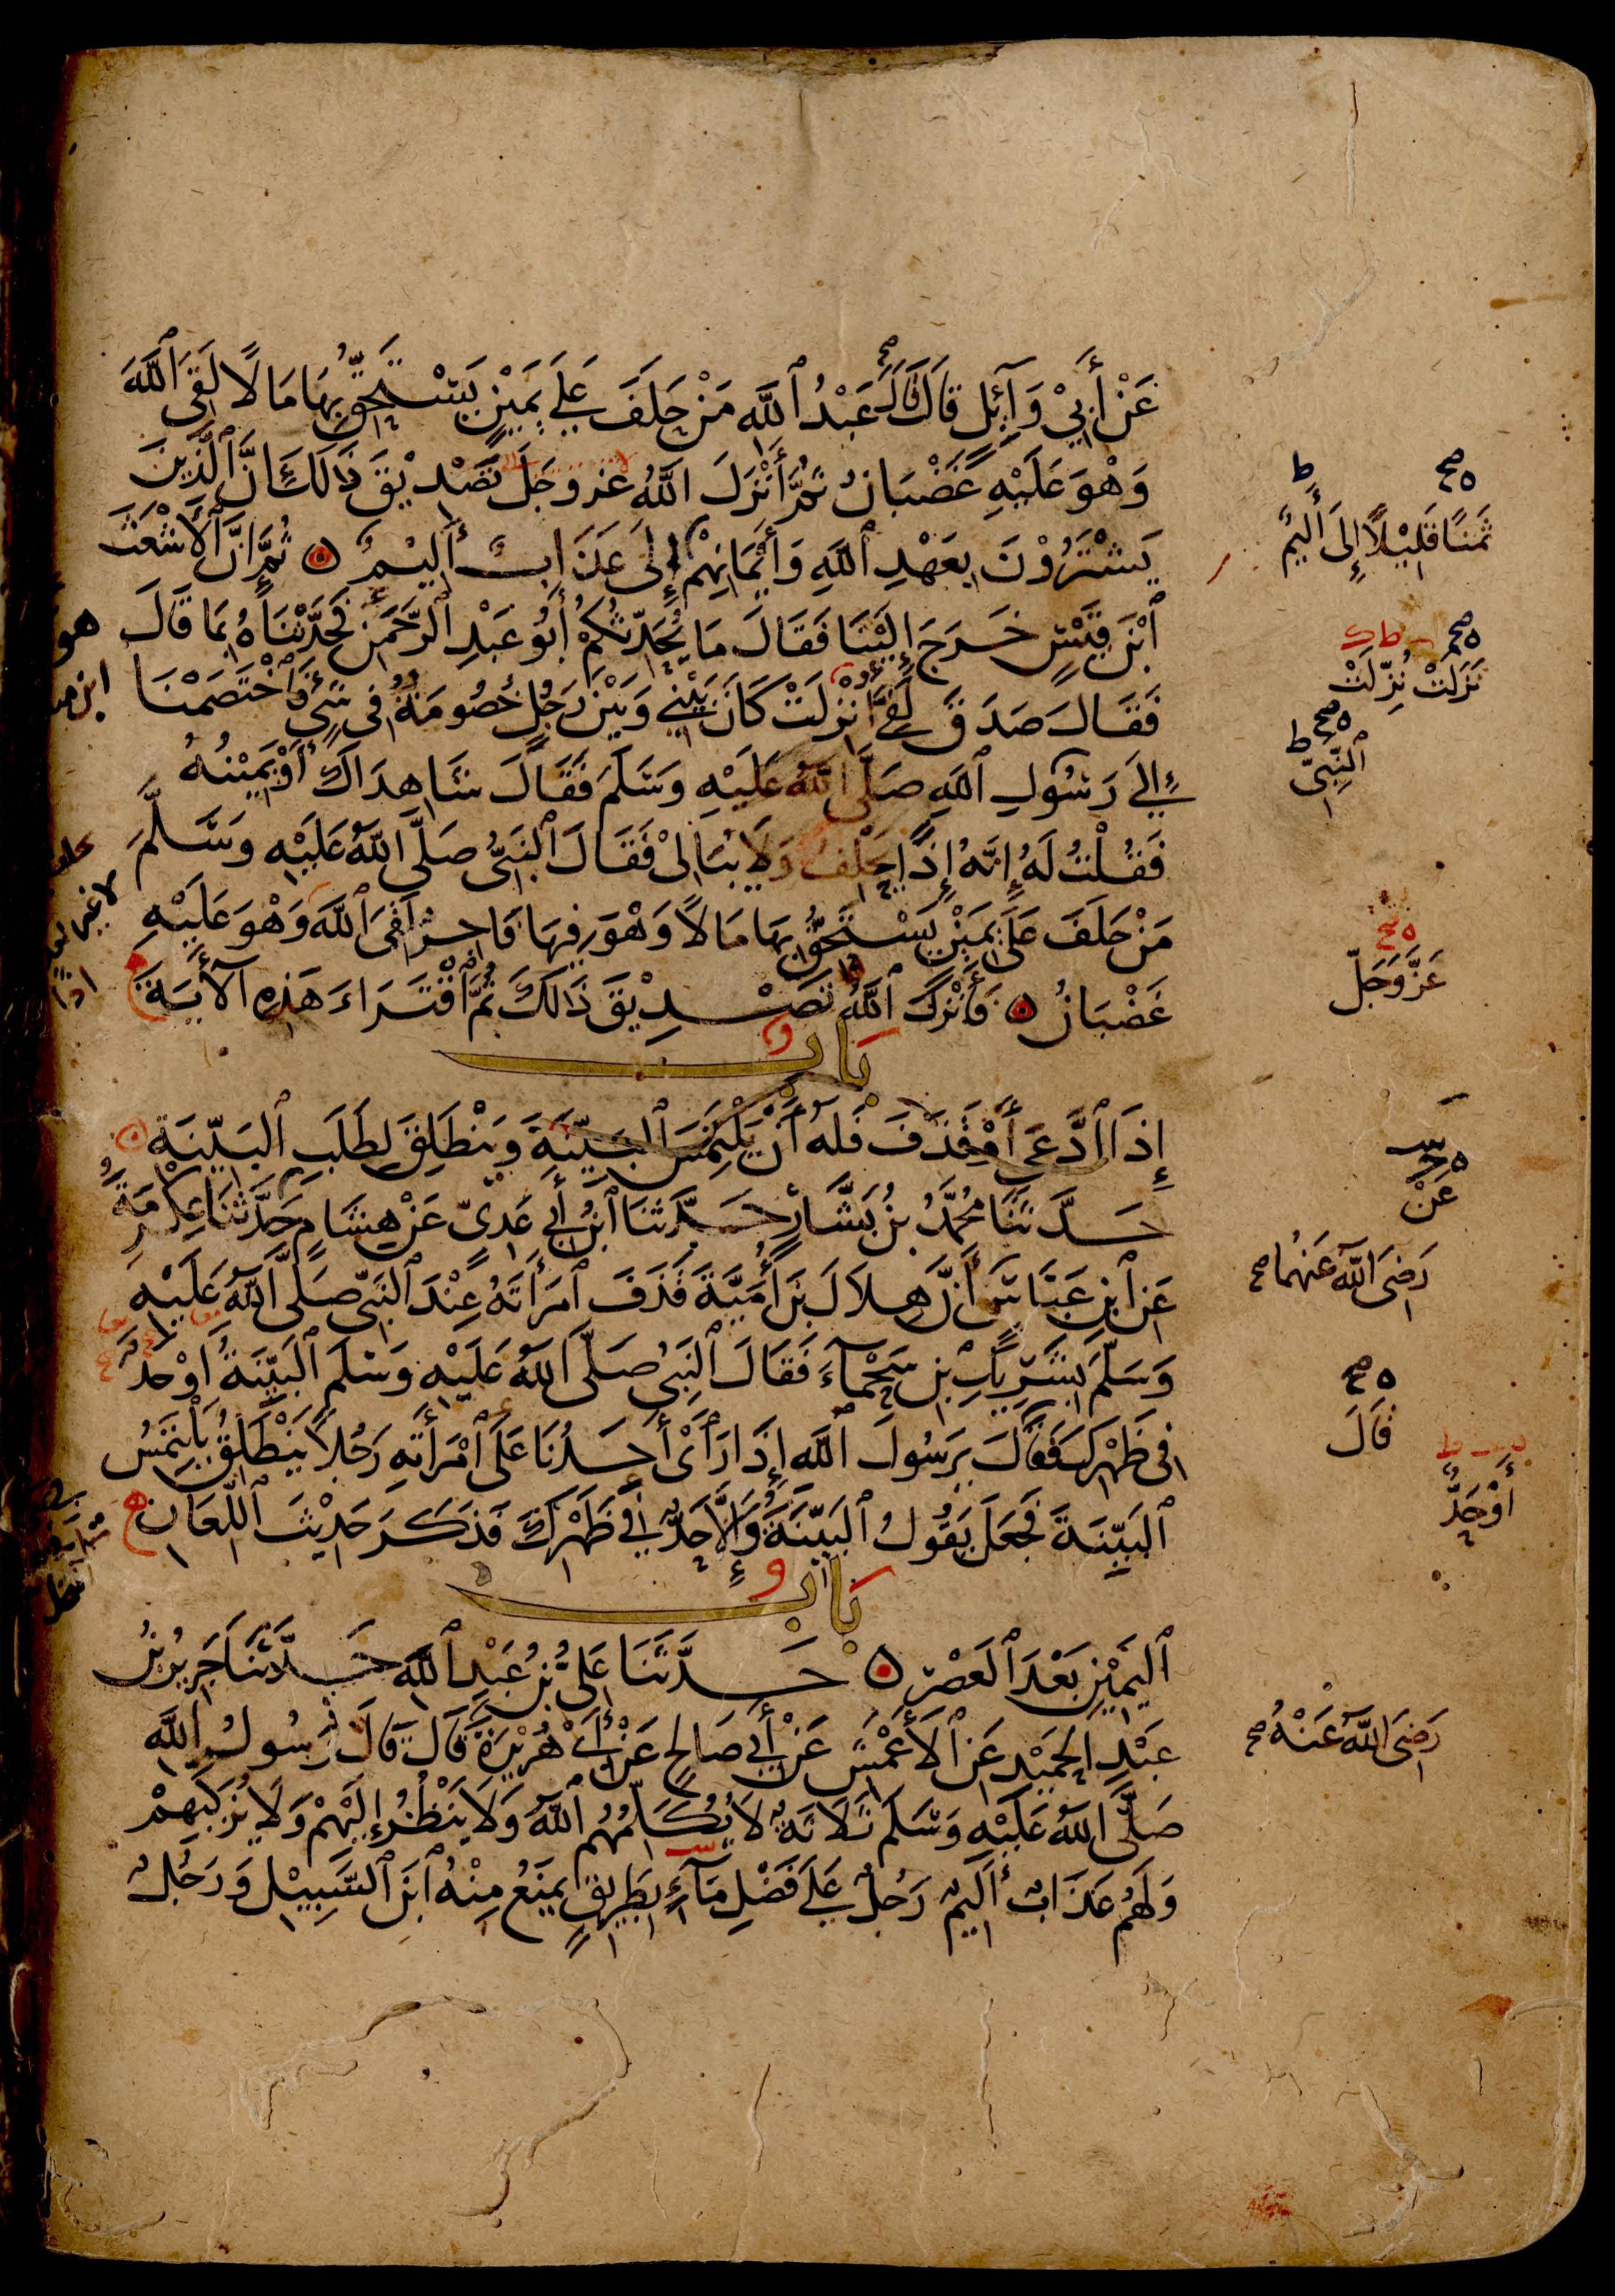 عَنْ أَبِيْ وَآئِلٍ قَالَ قَالَ عَبْدُ ٱللَّهِ مَنْ حَلَفَ عَلَى يَمِيْنٍ يَسْتَحِقُّ بِهَا مَالًا لَقِيَ ٱللَّهَ
وَهْوَ عَلَيْهِ غَضْبَانُ ثُمَّ أَنْزَلَ اللَّهُ عَزَّ وَجَلَّ تَصْدِيْقَ ذَالِكَ إِنَّ ٱلَّذِينَ
يَشْتَرُوْنَ بِعَهْدِ ٱللَّهِ وَأَيْمَانِهِمْ إِلَى عَذَابٌ أَلِيْمٌ ۞ ثُمَّ إِنَّ ٱلْأَشْعَثَ
ٱبْنَ قَيْسٍ خَرَجَ إِلَيْنَا فَقَالَ مَا يُحَدِّثُكُمْ أَبُو عَبْدِ ٱلرَّحْمَنِ فَحَدَّثْنَاهُ بِمَا قَالَ
فَقَالَ صَدَقَ لَفِيَّ أُنْزِلَتْ كَانَ بَيْنِيْ وَبَيْنَ رَجُلٍ خُصُومَةٌ فِي شَيْءٍ فَٱخْتَصَمْنَا
إِلَى رَسُولِ ٱللَّهِ صَلَّى اللَّهُ عَلَيْهِ وَسَلَّمَ فَقَالَ شَاهِدَاكَ أَوْ يَمِيْنُهُ
فَقُلْتُ لَهُ إِنَّهُ إِذًا يَحْلِفُ وَلَا يُبَالِيْ فَقَالَ ٱلنَّبِيُّ صَلَّى اللَّهُ عَلَيْهِ وَسَلَّمَ
مَنْ حَلَفَ عَلَى يَمِيْنٍ يَسْتَحِقُّ بِهَا مَالًا وَهْوَ فِيهَا فَاجِرٌ لَقِيَ ٱللَّهَ وَهْوَ عَلَيْهِ
غَضْبَانُ ۞ فَأَنْزَلَ ٱللَّهُ تَصْدِيْقَ ذَالِكَ ثُمَّ ٱقْتَرَاءَ هَذِهِ ٱلْآيَةَ
بَابٌ
إِذَا ٱدَّعَى أَوْ قَذَفَ فَلَهُ أَنْ يَلْتَمِسَ ٱلْبَيِّنَةَ وَيَنْطَلِقَ لِطَلَبِ ٱلْبَيِّنَةِ
حَدَّثَنَا مُحَمَّدُ بْنُ بَشَّارٍ حَدَّثَنَا ٱبْنُ أَبِي عَدِيٍّ عَنْ هِشَامٍ حَدَّثَنَا عِكْرِمَةُ
عَنِ ٱبْنِ عَبَّاسٍ أَنَّ هِلَالَ بْنَ أُمَيَّةَ قَذَفَ ٱمْرَأَتَهُ عِنْدَ ٱلنَّبِيِّ صَلَّى ٱللَّهُ عَلَيْهِ
وَسَلَّمَ بِشَرِيْكِ بْنِ سَحْمَاءَ فَقَالَ ٱلنَّبِيُّ صَلَّى ٱللَّهُ عَلَيْهِ وَسَلَّمَ ٱلْبَيِّنَةُ أَوْ حَدٌّ
فِي ظَهْرِكَ فَقَالَ يَرَسُولَ ٱللَّهِ إِذَا رَأَىْ أَحَدُنَا عَلَى ٱمْرَأَتِهِ رَجُلًا يَنْطَلِقُ يَلْتَمِسُ
ٱلْبَيِّنَةَ فَجَعَلَ يَقُولُ ٱلْبَيِّنَةَ وَإِلَّا حَدٌّ فِي ظَهْرِكَ فَذَكَرَ حَدِيْثَ ٱللِّعَانِ
بَابُ
ٱلْيَمِيْنِ بَعْدَ ٱلْعَصْرِ ۞ حَدَّثَنَا عَلِيُّ بْنُ عَبْدِ ٱللَّهِ حَدَّثَنَا جَرِيرُ بْنُ
عَبْدِ الْحَمِيْدِ عَنِ ٱلْأَعْمَشِ عَنْ أَبِي صَالِحٍ عَنْ أَبِي هُرَيْرَةَ قَالَ قَالَ رَسُولُ ٱللَّهِ
صَلَّى اللَّهُ عَلَيْهِ وَسَلَّمَ ثَلَاثَةٌ لَا يُكَلِّمُهُمُ ٱللَّهُ وَلَا يَنْظُرُ إِلَيْهِمْ وَلَا يُزَكِّيهِمْ
وَلَهُمْ عَذَابٌ أَلِيمٌ رَجُلٌ عَلَى فَضْلِ مَآءٍ بِطَرِيقٍ يَمْنَعُ مِنْهُ ٱبْنَ ٱلسَّبِيْلِ وَرَجُلٌ
ثَمَنًا قَلِيْلًا إِلَى أَلِيمٌ
نَزَلَتْ نُزِّلَتْ
ٱلنَّبِيِّ
عَزَّ وَجَلَّ
عَنْ
رَضِيَ اللَّهُ عَنْهُمَا صح
قَالَ
أَوْ حَدٌّ
رَضِيَ اللَّهُ عَنْهُ صح
هو